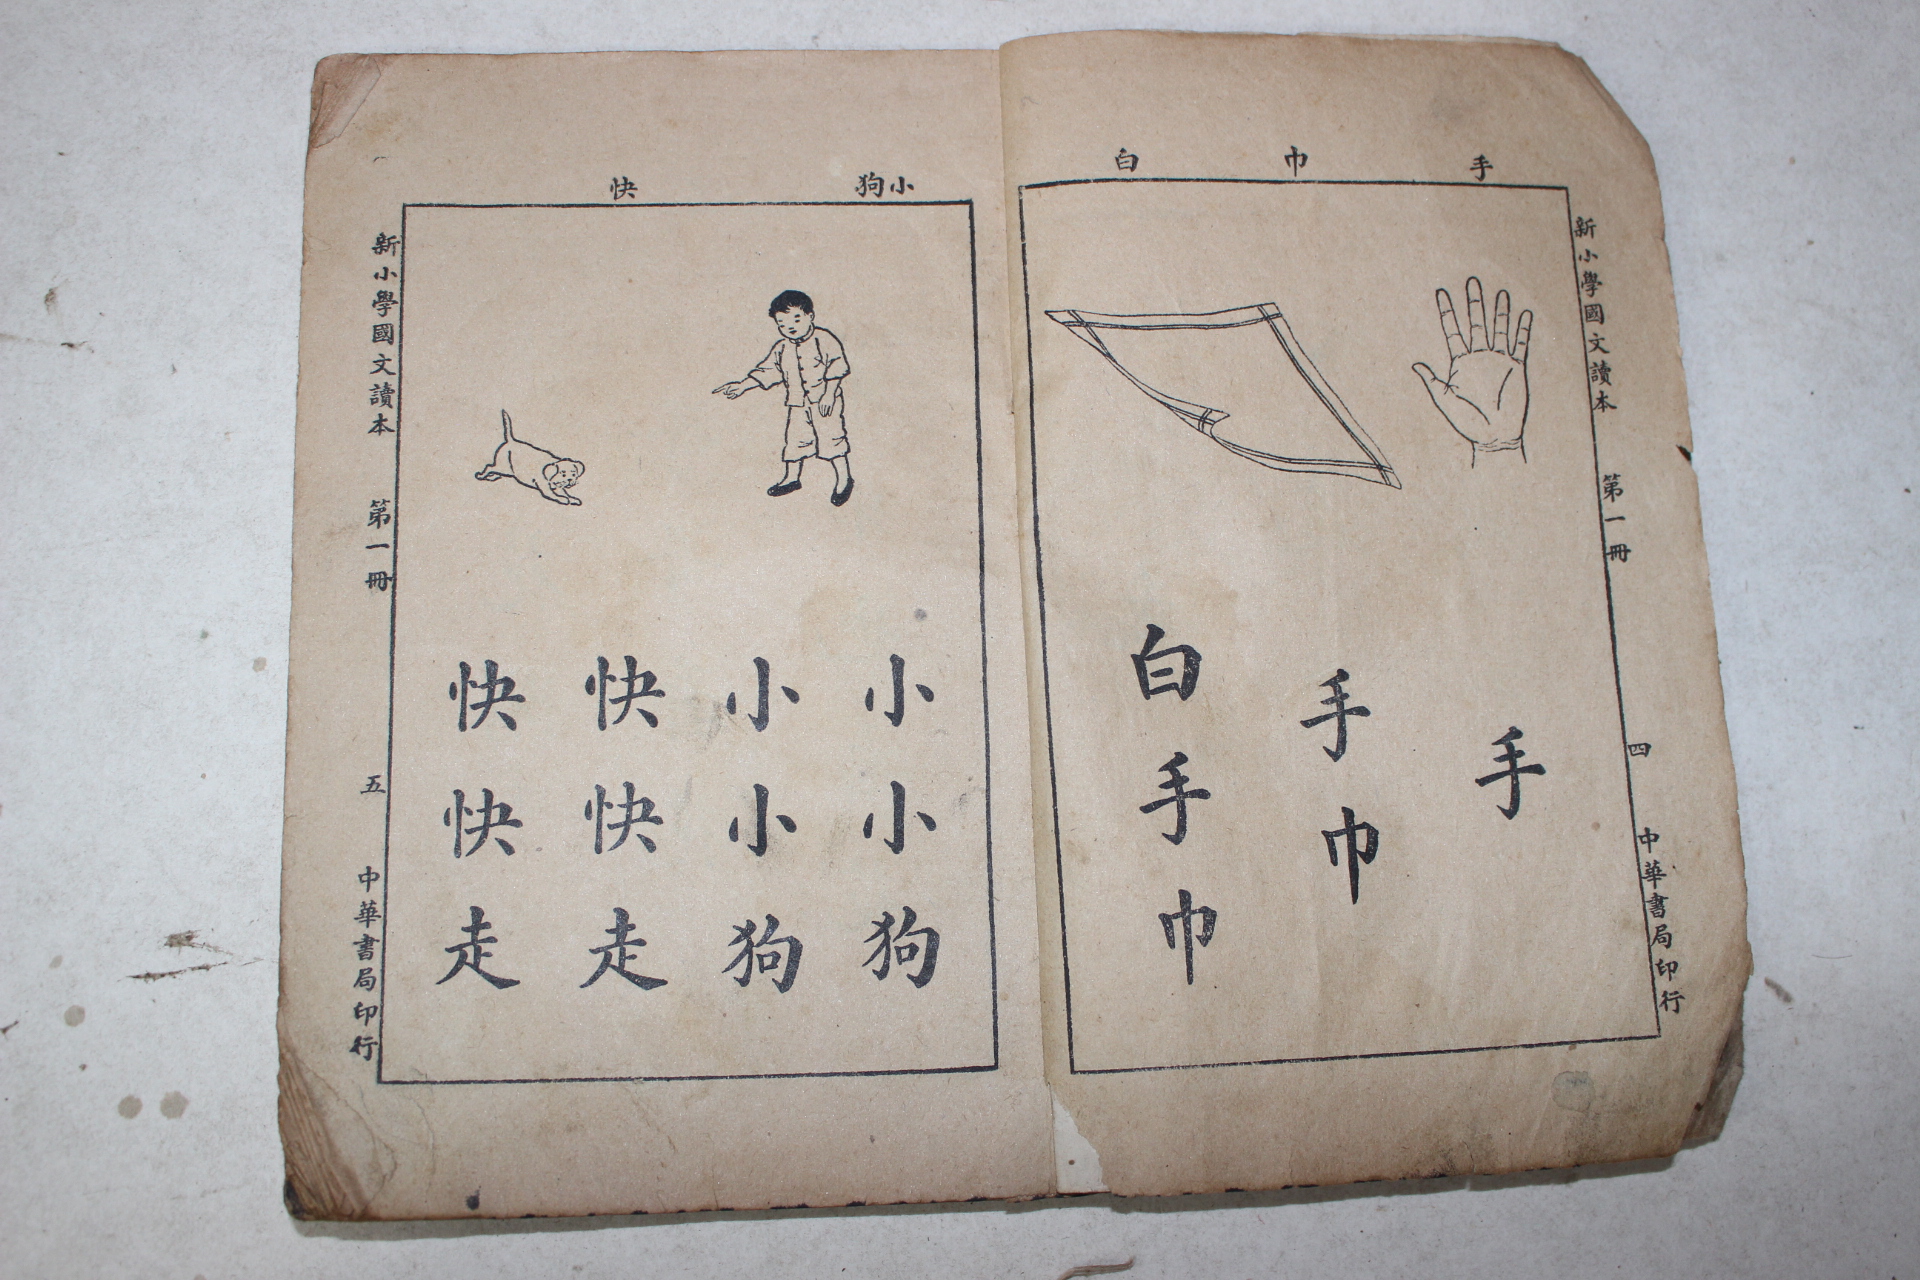 手
巾
白
手
手巾
白手巾
新小學國文讀本 第一冊 四 中華書局印行
小狗
快
小小狗
小小狗
快快走
快快走
新小學國文讀本 第一冊 五 中華書局印行